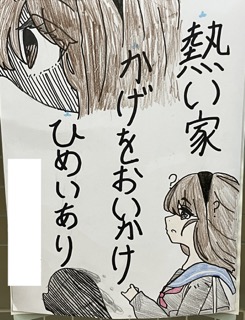 熱い家
かげをおいかけ
ひめいあり
?